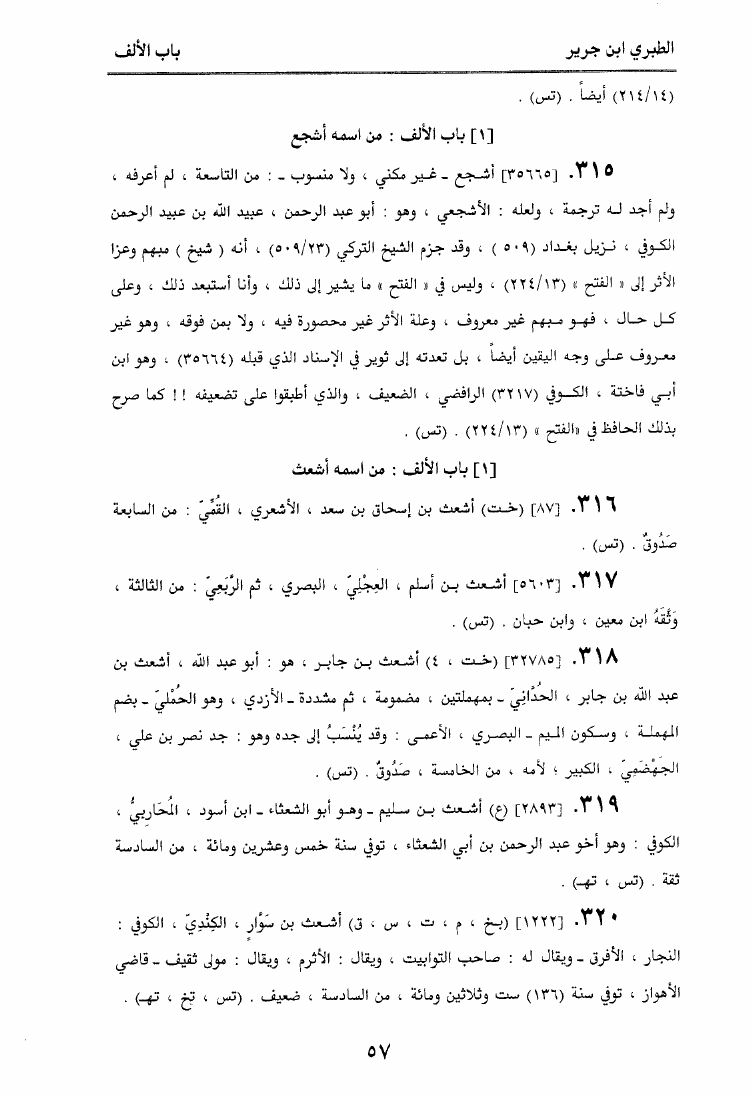 الطبري ابن جرير
باب الألف
(٢١٤/١٤) أيضاً . (تس) .
[١] باب الألف : من اسمه أشجع
٣١٥. [٣٥٦٦٥] أشجع ـ غير مكني ، ولا منسوب ـ : من التاسعة ، لم أعرفه ،
ولم أجد له ترجمة ، ولعله : الأشجعي ، وهو : أبو عبد الرحمن ، عبيد الله بن عبيد الرحمن
الكوفي ، نزيل بغداد (٥٠٩ ) ، وقد جزم الشيخ التركي (٥٠٩/٢٣) ، أنه ( شيخ ) مبهم وعزا
الأثر إلى « الفتح » (٢٢٤/١٣) ، وليس في « الفتح » ما يشير إلى ذلك ، وأنا أستبعد ذلك ، وعلى
كل حال ، فهو مبهم غير معروف ، وعلة الأثر غير محصورة فيه ، ولا بمن فوقه ، وهو غير
معروف على وجه اليقين أيضاً ، بل تعدته إلى ثوير في الإسناد الذي قبله (٣٥٦٦٤) ، وهو ابن
أبي فاختة ، الكوفي (٣٢١٧) الرافضي ، الضعيف ، والذي أطبقوا على تضعيفه !! كما صرح
بذلك الحافظ في «الفتح » (٢٢٤/١٣) . (تس) .
[١] باب الألف : من اسمه أشعث
٣١٦. [٨٧] (خت) أشعث بن إسحاق بن سعد ، الأشعري ، القُمِّيّ : من السابعة
صَدُوقٌ . (تس) .
٣١٧. [٥٦٠٣] أشعث بن أسلم ، العِجْلِيّ ، البصري ، ثم الرَّبَعِيّ : من الثالثة ،
وَثَّقَهُ ابن معين ، وابن حبان . (تس) .
٣١٨. [٣٢٧٨٥] (خت ، ٤) أشعث بن جابر ، هو : أبو عبد الله ، أشعث بن
عبد الله بن جابر ، الحُدَّانِيّ ـ بمهملتين ، مضمومة ، ثم مشددة ـ الأزدي ، وهو الحُمْليّ ـ بضم
المهملة ، وسكون الميم ـ البصري ، الأعمى : وقد يُنْسَبُ إلى جده وهو : جد نصر بن علي ،
الجَهْضَمِيّ ، الكبير ؛ لأمه ، من الخامسة ، صَدُوقٌ . (تس) .
٣١٩. [٢٨٩٣] (ع) أشعث بن سليم ـ وهو أبو الشعثاء ـ ابن أسود ، المُحَارِبيُّ ،
الكوفي : وهو أخو عبد الرحمن بن أبي الشعثاء ، توفي سنة خمس وعشرين ومائة ، من السادسة
ثقة . (تس ، تهـ) .
٣٢٠. [١٢٢٢] (بخ ، م ، ت ، س ، ق) أشعث بن سَوَّارٍ ، الكِنْدِيّ ، الكوفي :
النجار ، الأفرق ـ ويقال له : صاحب التوابيت ، ويقال : الأثرم ، ويقال : مولى ثقيف ـ قاضي
الأهواز ، توفي سنة (١٣٦) ست وثلاثين ومائة ، من السادسة ، ضعيف . (تس ، تخ ، تهـ) .
٥٧